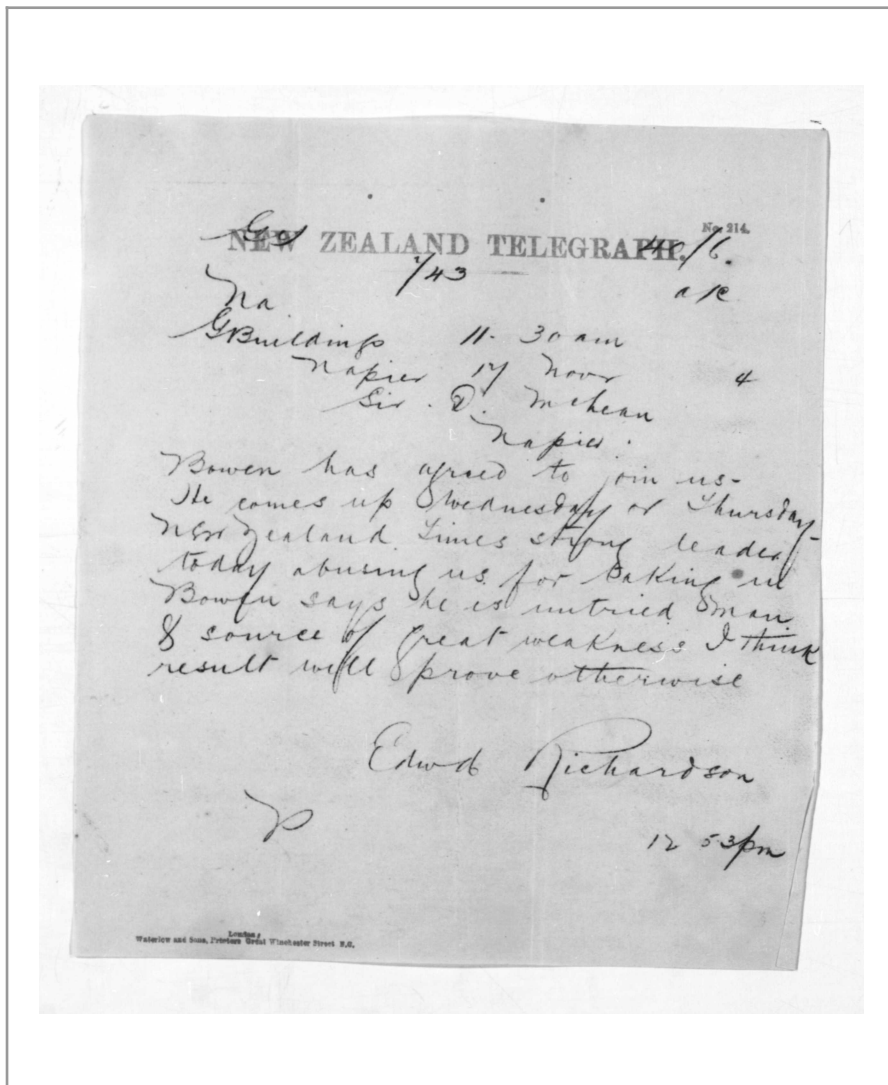 No. 214.
Gs
NEW ZEALAND TELEGRAPH. 40/6.
1/43
a K
Na
G Buildings 11. 30 am
Napier 17 Novr 4
Sir. D. McLean
Napier.
Bowen has agreed to join us-
He comes up Wednesday or Thursday-
New Zealand Times strong leader
today abusing us for taking in
Bowen says he is untried man
& source of great weakness I think
result will prove otherwise
Edwd Richardson
12 53pm
London;
Waterlow and Sons, Printers Great Winchester Street E.C.